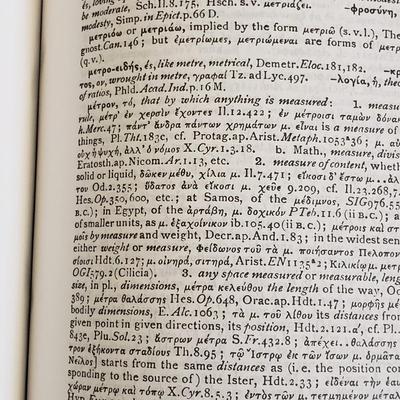 be moderate, Sch.Il.8.175, Hsch. s.v. μετριάζει. -φροσύνη,
modesty, Simp.in Epict.p.66 D.
μετριόω or μετριάω, implied by the form μετριῶ (s.v.l.),
gnost.Can.146; but ἐμετρίωμες, μετριώμεναι are forms of
(q.v.).
μετρο-ειδής, ές, like metre, metrical, Demetr.Eloc.181,182.
τος, ον, wrought in metre, γραφαί Tz.ad Lyc.497. -λογία, ἡ,
of ratios, Phld.Acad.Ind.p.16 M.
μέτρον, τό, that by which anything is measured: 1.
rule, μέτρ' ἐν χερσὶν ἔχοντες Il.12.422; ἐν μέτροισι ταμὼν
h.Merc.47; πάντ' ἄνδρα πάντων χρημάτων μ. εἶναι is a measure of
things, Pl.Tht.183c, cf. Protag.ap.Arist.Metaph.1053ᵃ36; μ.
οὐχ ἡ ψυχή, ἀλλ' ὁ νόμος X.Cyr.1.3.18. b. Math., measure,
Eratosth.ap.Nicom.Ar.1.13, etc. 2. measure of content,
solid or liquid, δῶκεν μέθυ, χίλια μ. Il.7.471; εἴκοσι δ' ἔστω μ.
τον Od.2.355; ὕδατος ἀνὰ εἴκοσι μ. χεῦε 9.209, cf. Il.23.268,
Hes.Op.350,600, etc.; at Samos, of the μέδιμνος, SIG976.55
B.C.); in Egypt, of the ἀρτάβη, μ. δοχικόν PTeb.11.6 (ii B.C.);
of smaller units, as μ. ἑξαχοίνικον ib.105.40 (ii B.C.); μέτροις καὶ
μοῖς by measure and weight, Decr.ap.And.1.83; in the widest
either weight or measure, Φείδωνος τοῦ τὰ μ. ποιήσαντος
σίοισι Hdt.6.127; μ. οἰνηρά, σιτηρά, Arist.EN1135ᵃ2; Κιλικίῳ μ.
OGI579.2 (Cilicia). 3. any space measured or measurable,
size, in pl., dimensions, μέτρα κελεύθου the length of the way,
389; μέτρα θαλάσσης Hes.Op.648, Orac.ap.Hdt.1.47; μορφῆς
bodily dimensions, E.Alc.1063; τὰ μ. τοῦ λίθου its distances from
given point in given directions, its position, Hdt.2.121.α', cf. Pl.
843e, Plu.Sol.23; ἄστρων μέτρα S.Fr.432.8; ἀπέχει..θαλάσσης
τρον ἑξήκοντα σταδίους Th.8.95; τῷ Ἴστρῳ ἐκ τῶν ἴσων μ. ὁρμᾶται
Νεῖλος] starts from the same distances as (i.e. the position
sponding to the source of) the Ister, Hdt.2.33; εἰδέναι τὴν
χώραν μέτρῳ καὶ τόπῳ X.Cyr.8.5.3; ἐντὸς τῶν τετμημένων